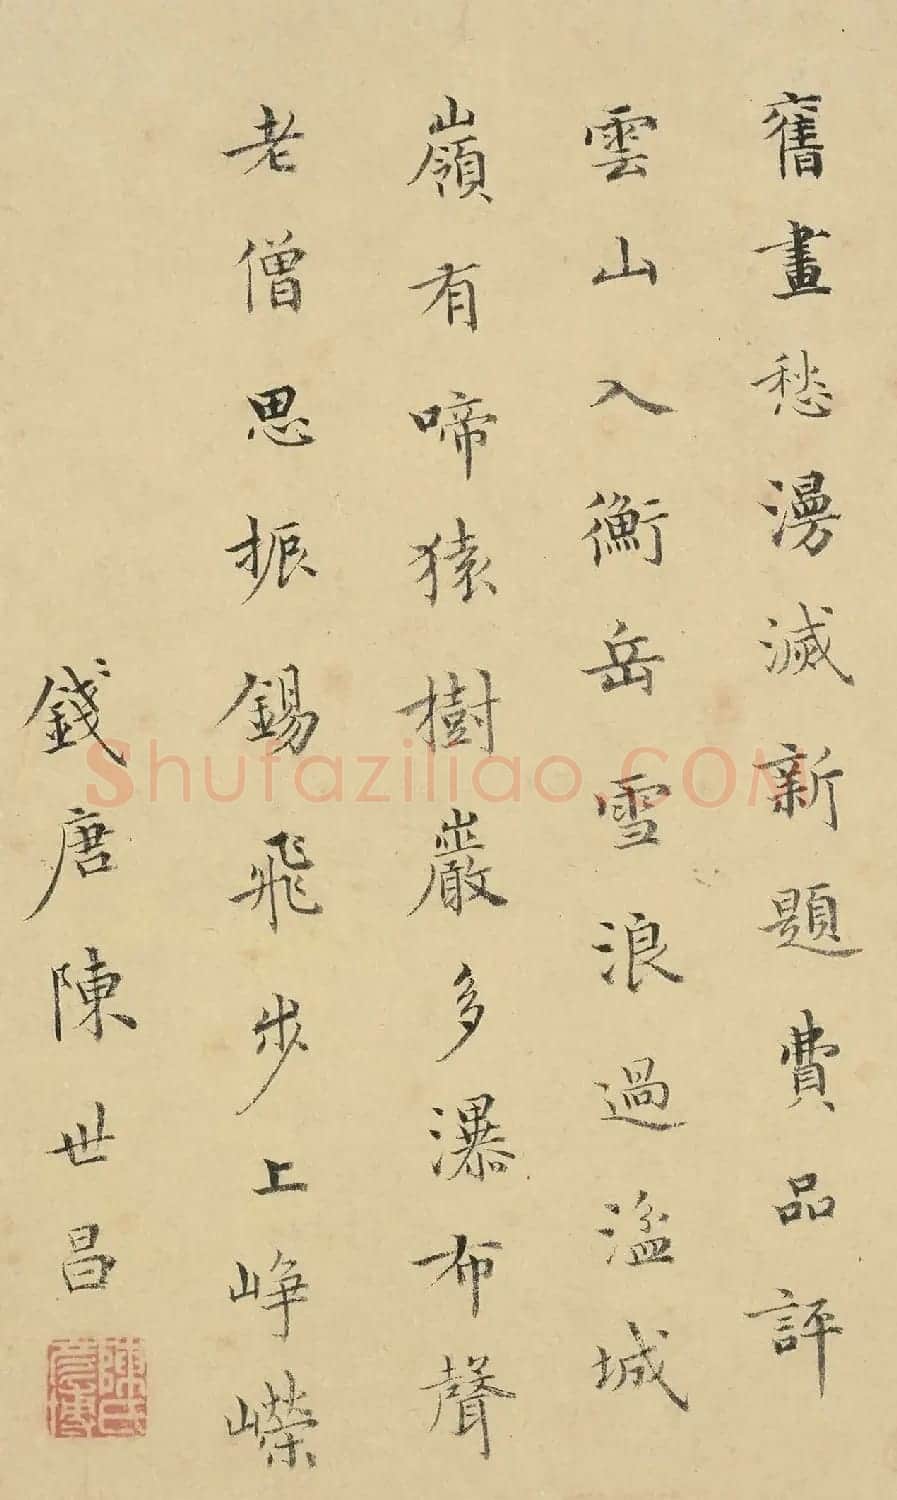 舊畫愁漫滅新題費品評
雲山入衡岳雪浪過湓城
嶺有啼猿樹巖多瀑布聲
老僧思振錫飛步上崢嶸
錢唐陳世昌
Shufaziliao.COM